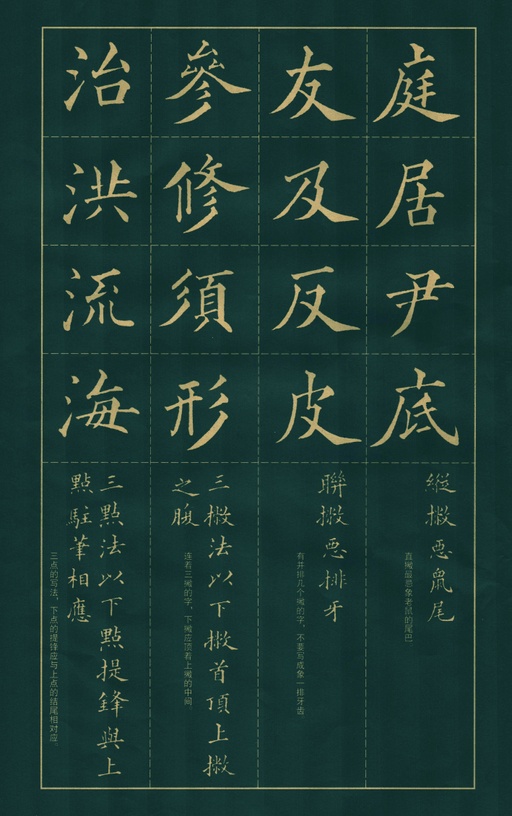 庭居尹底
縱撇惡鼠尾
直撇最忌象老鼠的尾巴
友及反皮
聯撇惡排牙
有并排几个撇的字，不要写成象一排牙齿
參修須形
三撇法以下撇首頂上撇
之腹
连着三撇的字，下撇应顶着上撇的中间。
治洪流海
三點法以下點提鋒與上
點駐筆相應
三点的写法，下点的提锋应与上点的结尾相对应。